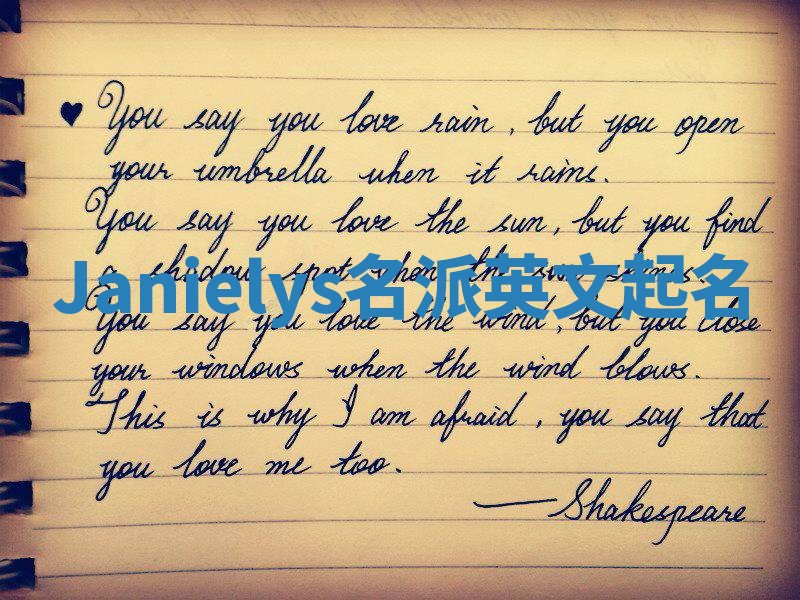 ♥ You say you love rain, but you open
your umbrella when it rains.
You say you love the sun, but you find
a shadow spot when the sun shines.
Janielys名派英文起名
You say you love the wind, but you close
your windows when the wind blows.
This is why I am afraid, you say that
you love me too.
—Shakespeare